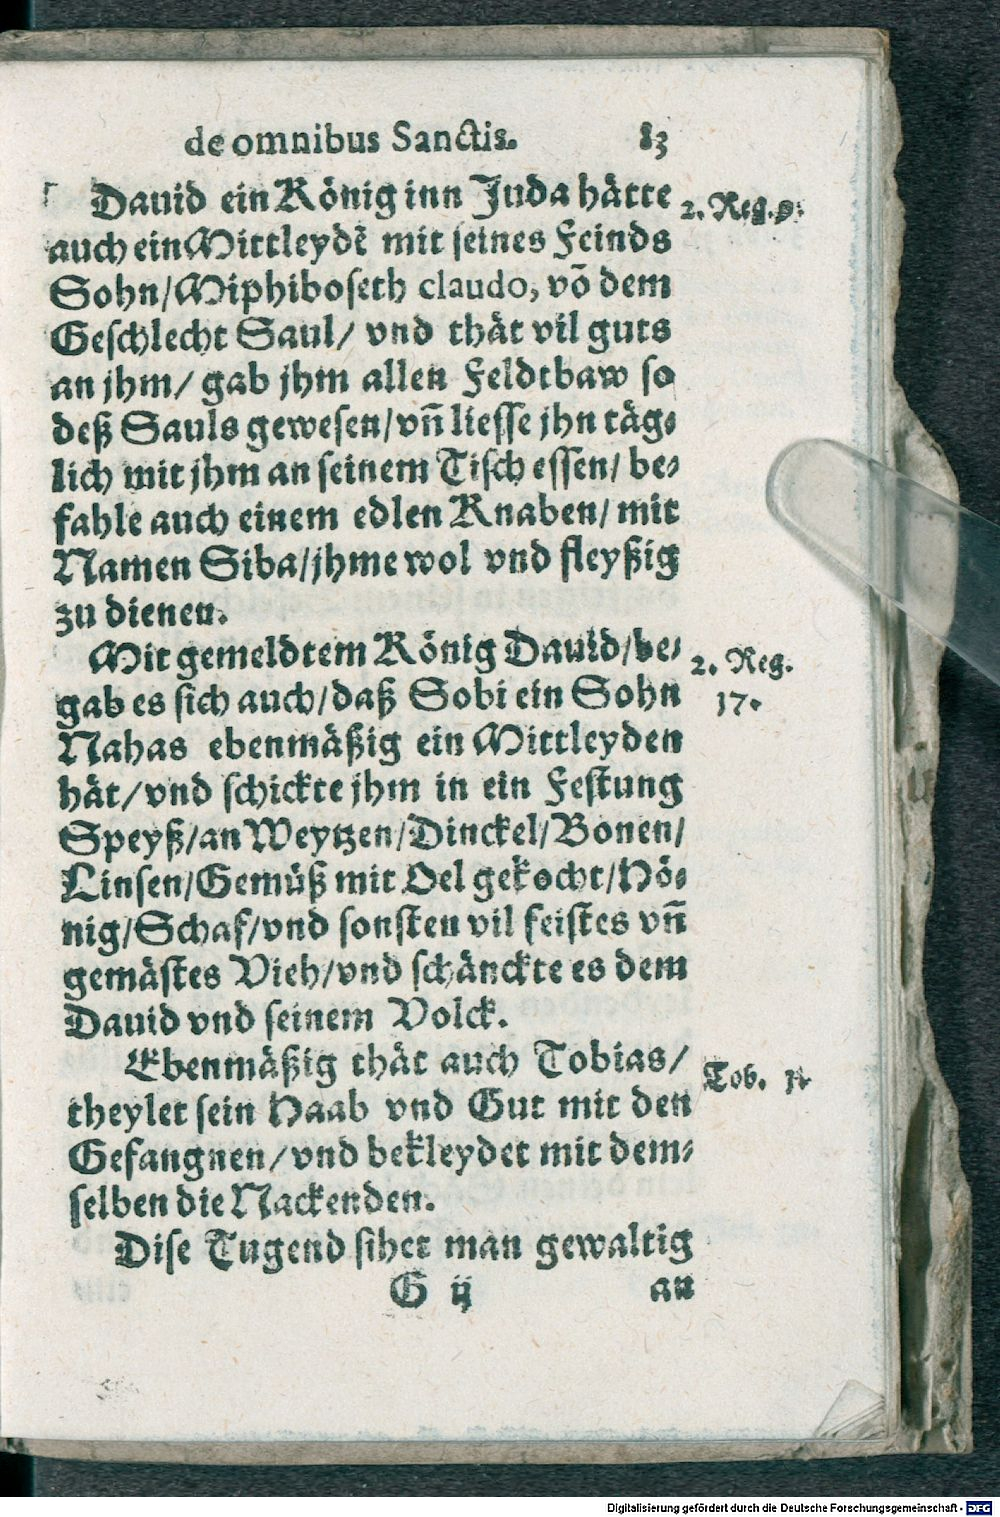 de omnibus Sanctis. 83
Dauid ein König inn Juda hätte
2. Reg. 9.
auch ein Mittleydẽ mit seines Feinds
Sohn/Miphiboseth claudo, võ dem
Geschlecht Saul/ vnd thät vil guts
an jhm/ gab jhm allen Feldtbaw so
deß Sauls gewesen/vñ liesse jhn täg-
lich mit jhm an seinem Tisch essen/ be-
fahle auch einem edlen Knaben/ mit
Namen Siba/jhme wol vnd fleyßig
zu dienen.
Mit gemeldtem König Dauid/be-
2. Reg.
17.
gab es sich auch/daß Sobi ein Sohn
Nahas ebenmäßig ein Mittleyden
hät/vnd schickte jhm in ein Festung
Speyß/an Weytzen/Dinckel/Bonen/
Linsen/Gemüß mit Oel gekocht/Hö-
nig/Schaf/vnd sonsten vil feistes vñ
gemästes Vieh/vnd schänckte es dem
Dauid vnd seinem Volck.
Ebenmäßig thät auch Tobias/
Tob.
theylet sein Haab vnd Gut mit den
Gefangnen/vnd bekleydet mit dem-
selben die Nackenden.
Dise Tugend sihet man gewaltig
G ij an
Digitalisierung gefördert durch die Deutsche Forschungsgemeinschaft - DFG